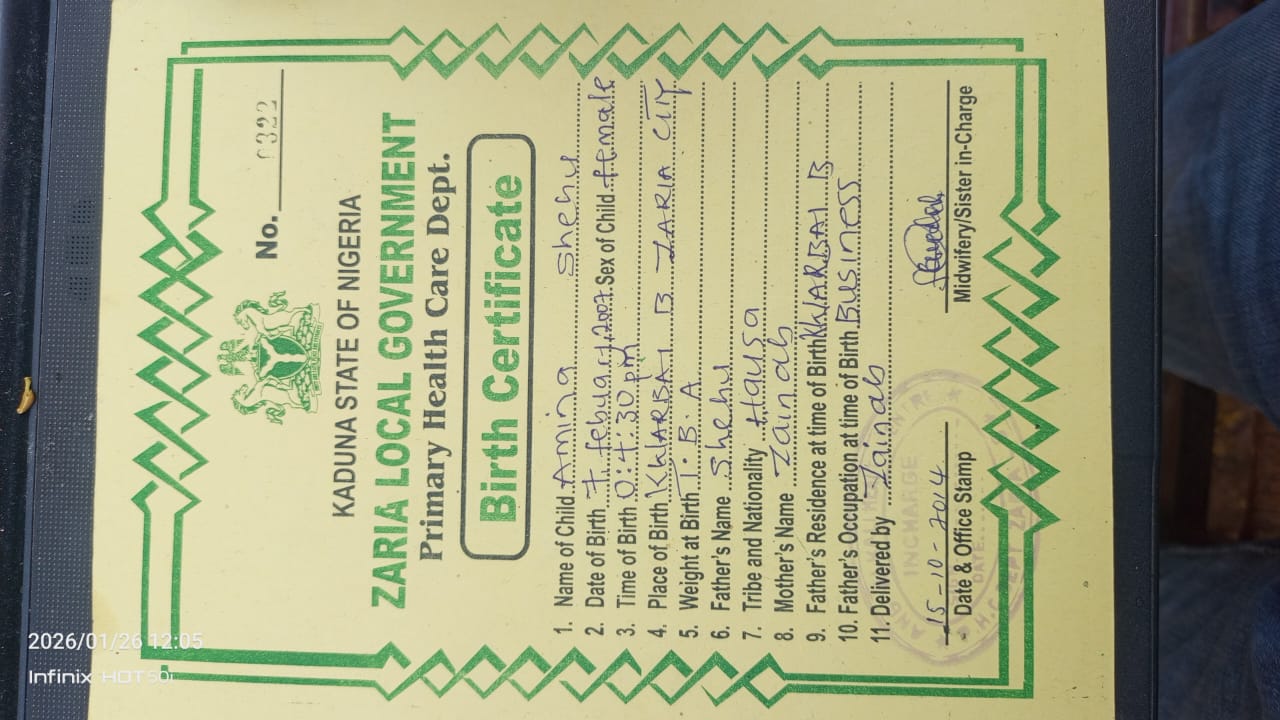 No. 0322
KADUNA STATE OF NIGERIA
ZARIA LOCAL GOVERNMENT
Primary Health Care Dept.
Birth Certificate
1. Name of Child Amina Shehu
2. Date of Birth 7 febuary, 2007 Sex of Child female
3. Time of Birth 0:4:30 pm
4. Place of Birth KWARBAI B ZARIA CITY
5. Weight at Birth T. B. A
6. Father's Name Shehu
7. Tribe and Nationality Hausa
8. Mother's Name Zainab
9. Father's Residence at time of Birth KWARBAI B
10. Father's Occupation at time of Birth Business
11. Delivered by Zainab
15-10-2014
Date & Office Stamp
Midwifery/Sister in-Charge
INCHARGE
DATE
2026/01/26 12:05
Infinix HOT 50i